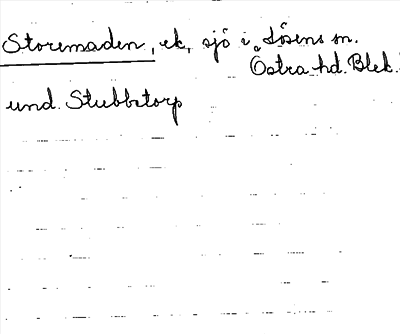 Storemaden, ek, sjö i Lösens sn.
Östra hd. Blek.
und. Stubbetorp